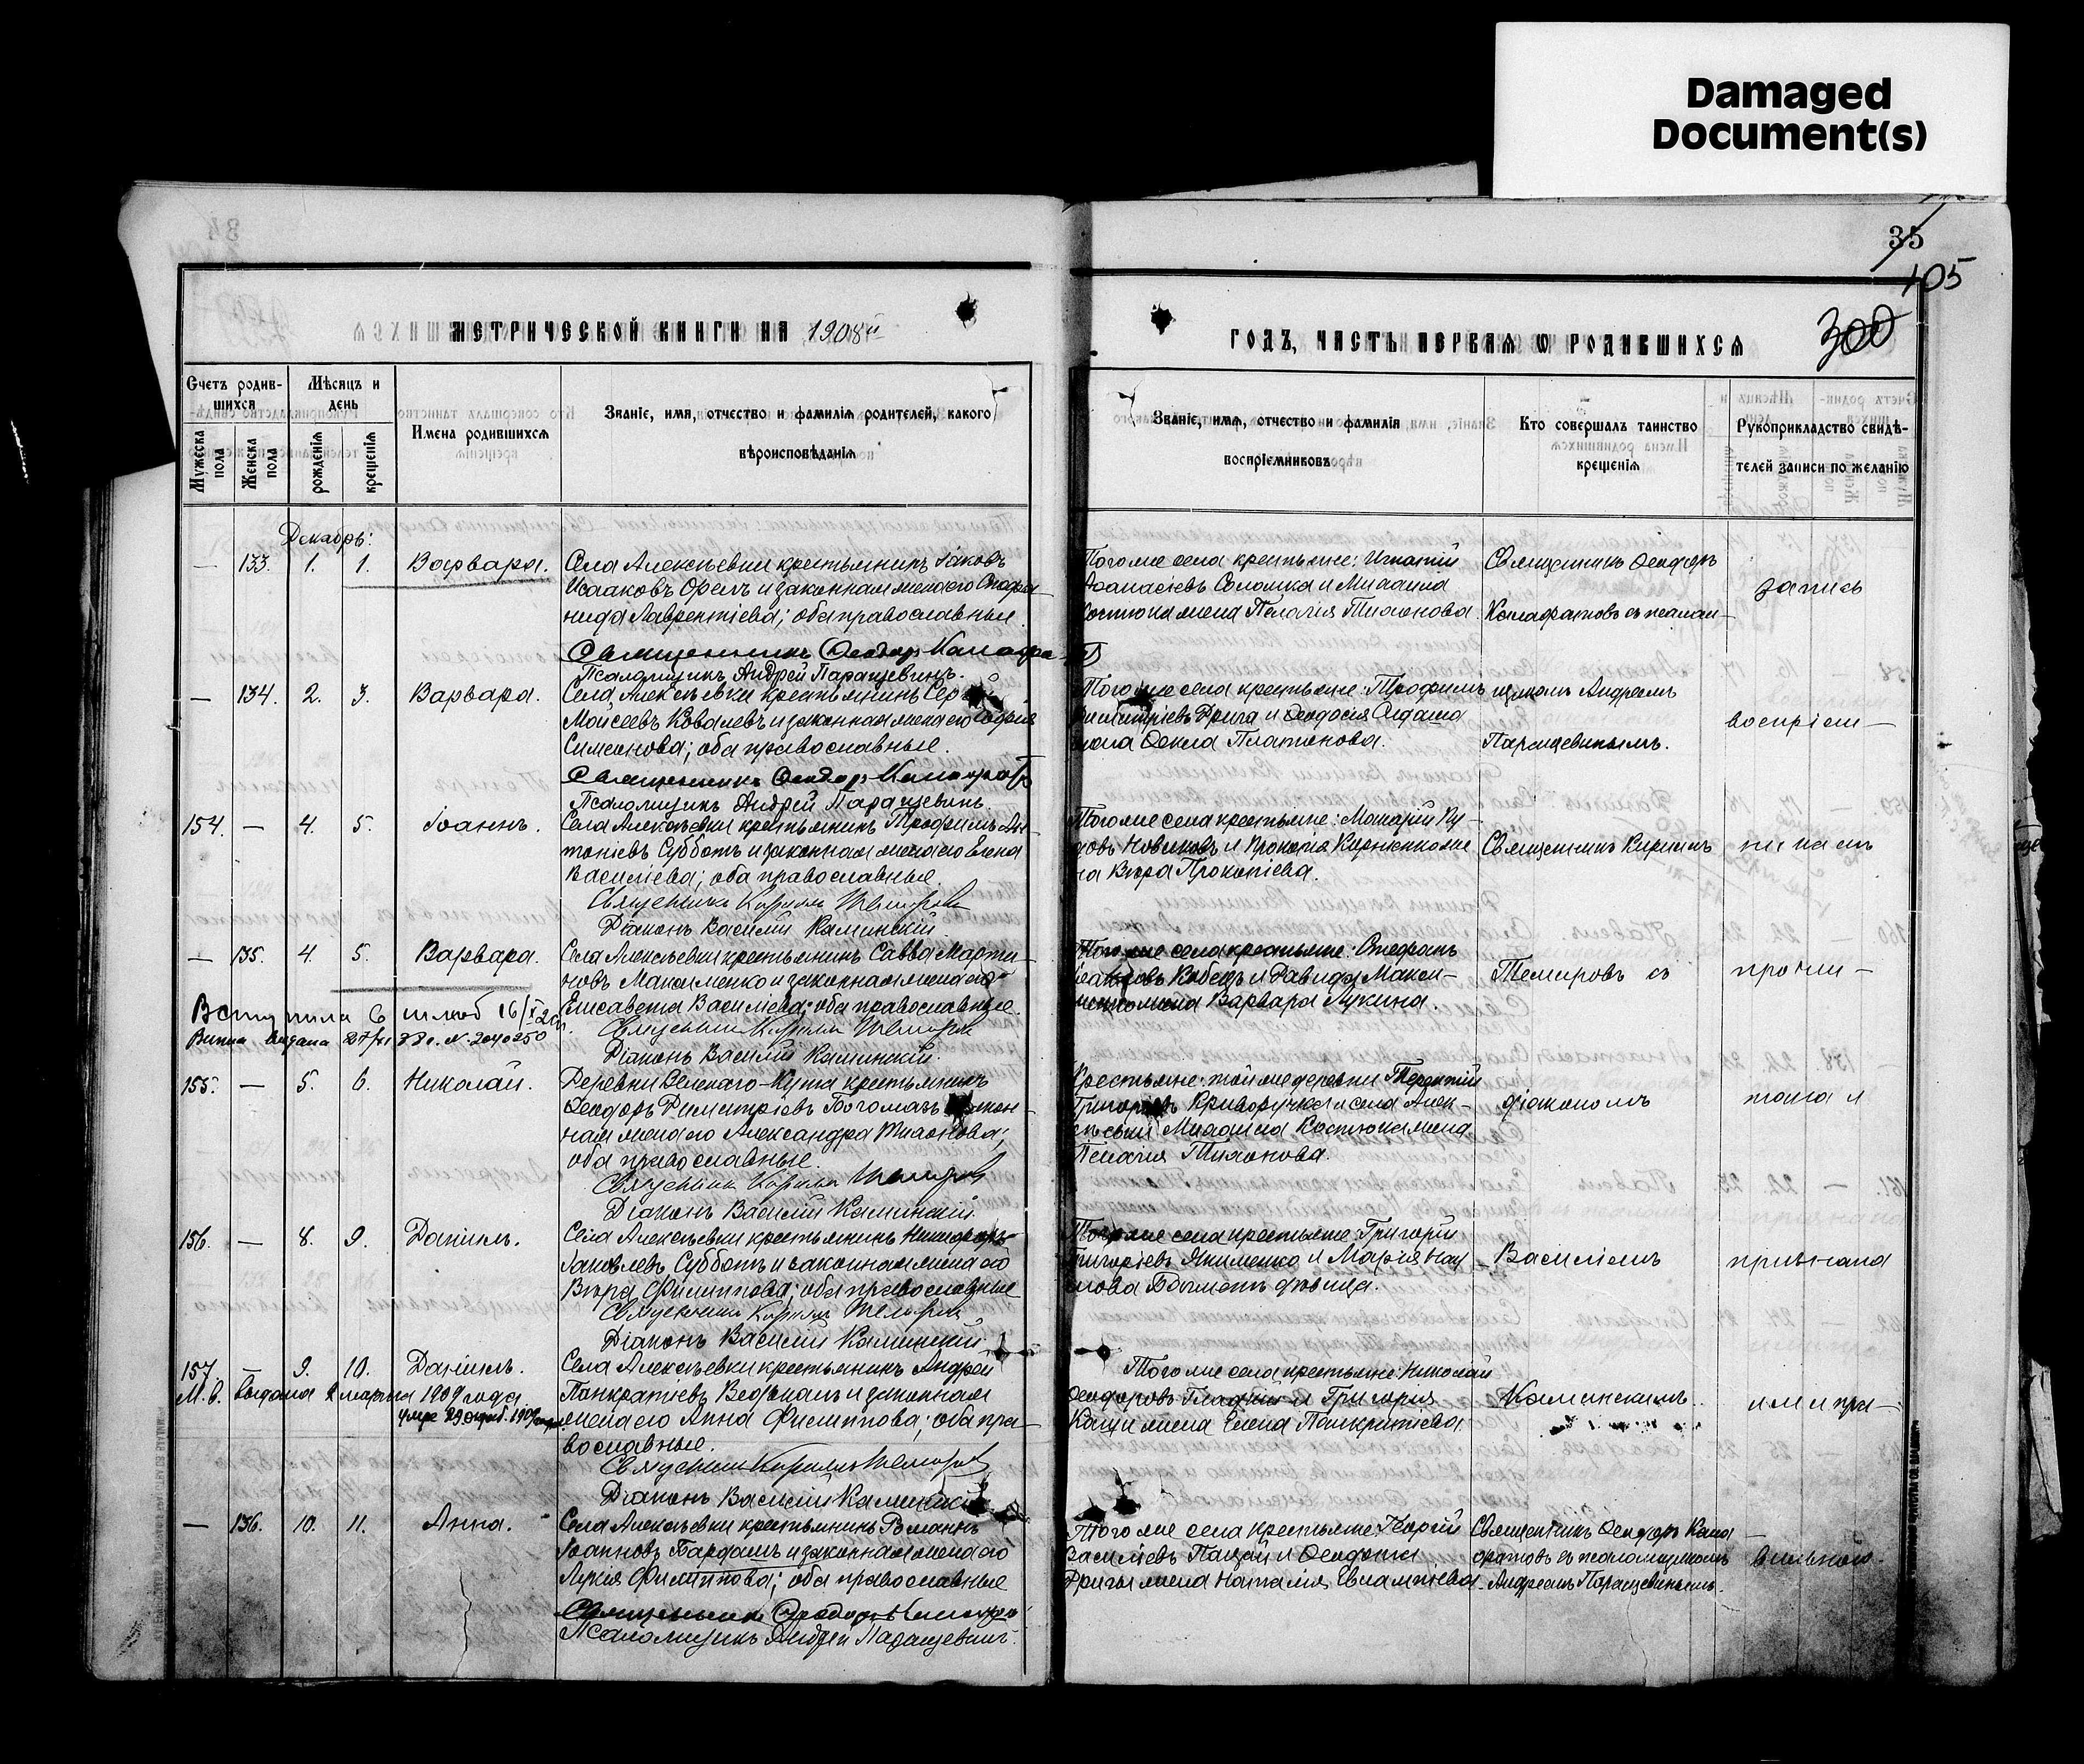 Damaged
Document(s)
35
105
300
МЕТРИЧЕСКОЙ КНИГИ НА 1908й
ГОДЪ, ЧАСТЬ ПЕРВАЯ Ѡ РОДИВШИХСЯ
Счетъ родив-
шихся
Мѣсяцъ и
день
Мужеска
пола
Женска
пола
рожденія
крещенія
Имена родившихся
Званіе, имя, отчество и фамилія родителей, какого
вѣроисповѣданія
Званіе, имя, отчество и фамилія
воспріемниковъ
Кто совершалъ таинство
крещенія
Рукоприкладство свидѣ-
телей записи по желанію
Декабрь:
— 133. 1. 1. Варвара.
Села Алексѣевки крестьянинъ Іаковъ
Исааковъ Орелъ и законная жена его Стефа-
нида Лаврентіева; оба православные.
Священникъ Ѳеодоръ
Псаломщикъ Андрей Паращевинъ.
Того же села крестьяне: Игнатій
Аѳанасіевъ Соломка и Михаила
Костюка жена Пелагія Тихонова.
Священникъ Ѳеодоръ
съ псалом-
запись
— 134. 2. 3. Варвара.
Села Алексѣевки крестьянинъ
Моисеевъ Ковалевъ и законная жена его Софія
Симеонова; оба православные.
Священникъ Ѳеодоръ
Псаломщикъ Андрей Паращевинъ.
Того же села крестьяне: Трофимъ
Димитріевъ Дрига и Ѳеодосія
жена Ѳекла Платонова.
щикомъ Андреемъ
Паращевинымъ.
воспріем-
154. — 4. 5. Іоаннъ.
Села Алексѣевки крестьянинъ Трофимъ Ан-
тоніевъ Субботъ и законная жена его Елена
Василіева; оба православные.
Священникъ Кириллъ Темировъ
Діаконъ Василій Каминскій.
Того же села крестьяне: Макарій
Новиковъ и Прокопія
на Вѣра Прокопіева.
Священникъ Кириллъ
никамъ
— 135. 4. 5. Варвара.
Села Алексѣевки крестьянинъ Савва Марти-
новъ Максименко и законная жена его
Елисавета Василіева; оба православные.
Священникъ Кириллъ Темировъ
Діаконъ Василій Каминскій.
Вступила в шлюб 16/
Того же села крестьяне: Стефанъ
и Давида Макси-
менко жена Варвара Лукина.
Темировъ съ
прочи-
155. — 5. 6. Николай.
Деревни Зеленаго-Кута крестьянинъ
Ѳеодоръ Димитріевъ Богомазъ и закон-
ная жена его Александра Тихонова;
оба православные.
Священникъ Кирилл Темировъ
Діаконъ Василій Каминскій.
Крестьяне: той же деревни Терентій
Григоріевъ Криворучка и села Алек-
сѣевки Михаила Костюка жена
Пелагія Тихонова.
діакономъ
тана и
156. — 8. 9. Даніилъ.
Села Алексѣевки крестьянинъ Никифоръ
Іаковлевъ Субботъ и законная жена его
Вѣра Филиппова; оба православные
Священникъ Кириллъ Темировъ
Діаконъ Василій Каминскій.
Того же села крестьяне: Григорій
Григоріевъ Якименко и Марія
дѣвица.
Василіемъ
признана
157 — 9. 10. Даніилъ.
М. в. выдана 2 марта 1909 года
Села Алексѣевки крестьянинъ Андрей
Панкратіевъ и законная
жена его Анна Филиппова; оба пра-
вославные.
Священникъ Кириллъ Темировъ
Діаконъ Василій Каминскій
Того же села крестьяне: Николай
Ѳеодоровъ Гладкій и Григорія
Кацы жена Елена Панкратіева.
Каминскимъ.
ими пра-
— 136. 10. 11. Анна.
Села Алексѣевки крестьянинъ Романъ
Іоанновъ Бардашъ и законная жена его
Лукія Филиппова; оба православные
Священникъ Ѳеодоръ
Псаломщикъ Андрей Паращевинъ.
Того же села крестьяне: Георгій
Василіевъ Пацай и Ѳеодота
Дриги жена Наталія Евлампіева.
Священникъ Ѳеодоръ
съ псаломщикомъ
Андреемъ Паращевинымъ.
вильною.